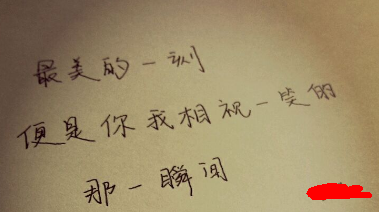 最美的一刻
便是你我相视一笑的
那一瞬间